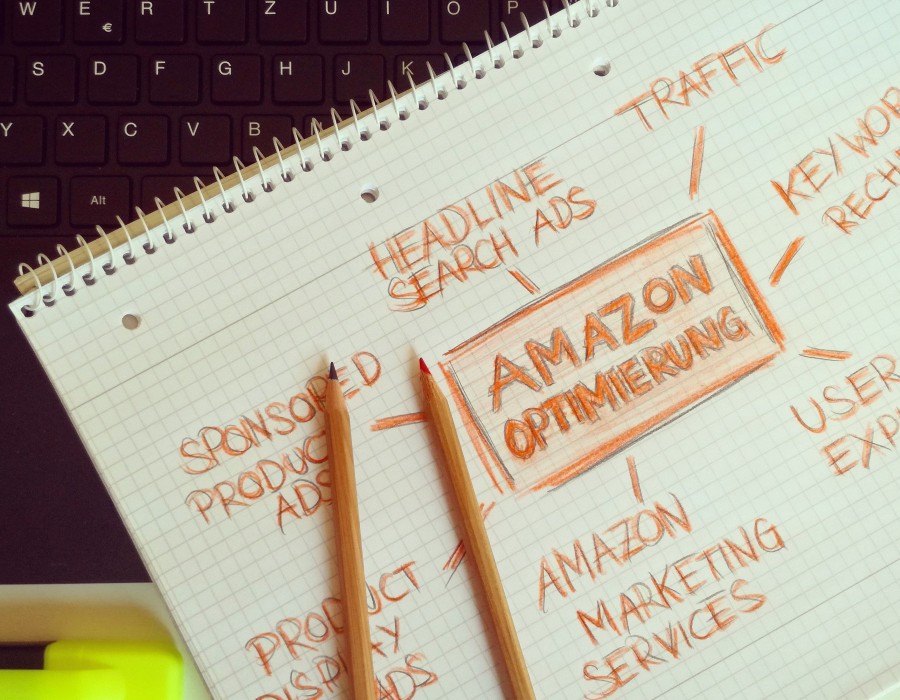 W E R T Z U I O P
€
S D F G H J K
Y X C V B
Alt
TRAFFIC
KEYWOR
RECH
HEADLINE
SEARCH ADS
AMAZON
OPTIMIERUNG
SPONSORED
PRODUCT
ADS
USER
EXP
AMAZON
MARKETING
SERVICES
PRODUCT
DISPLAY
ADS